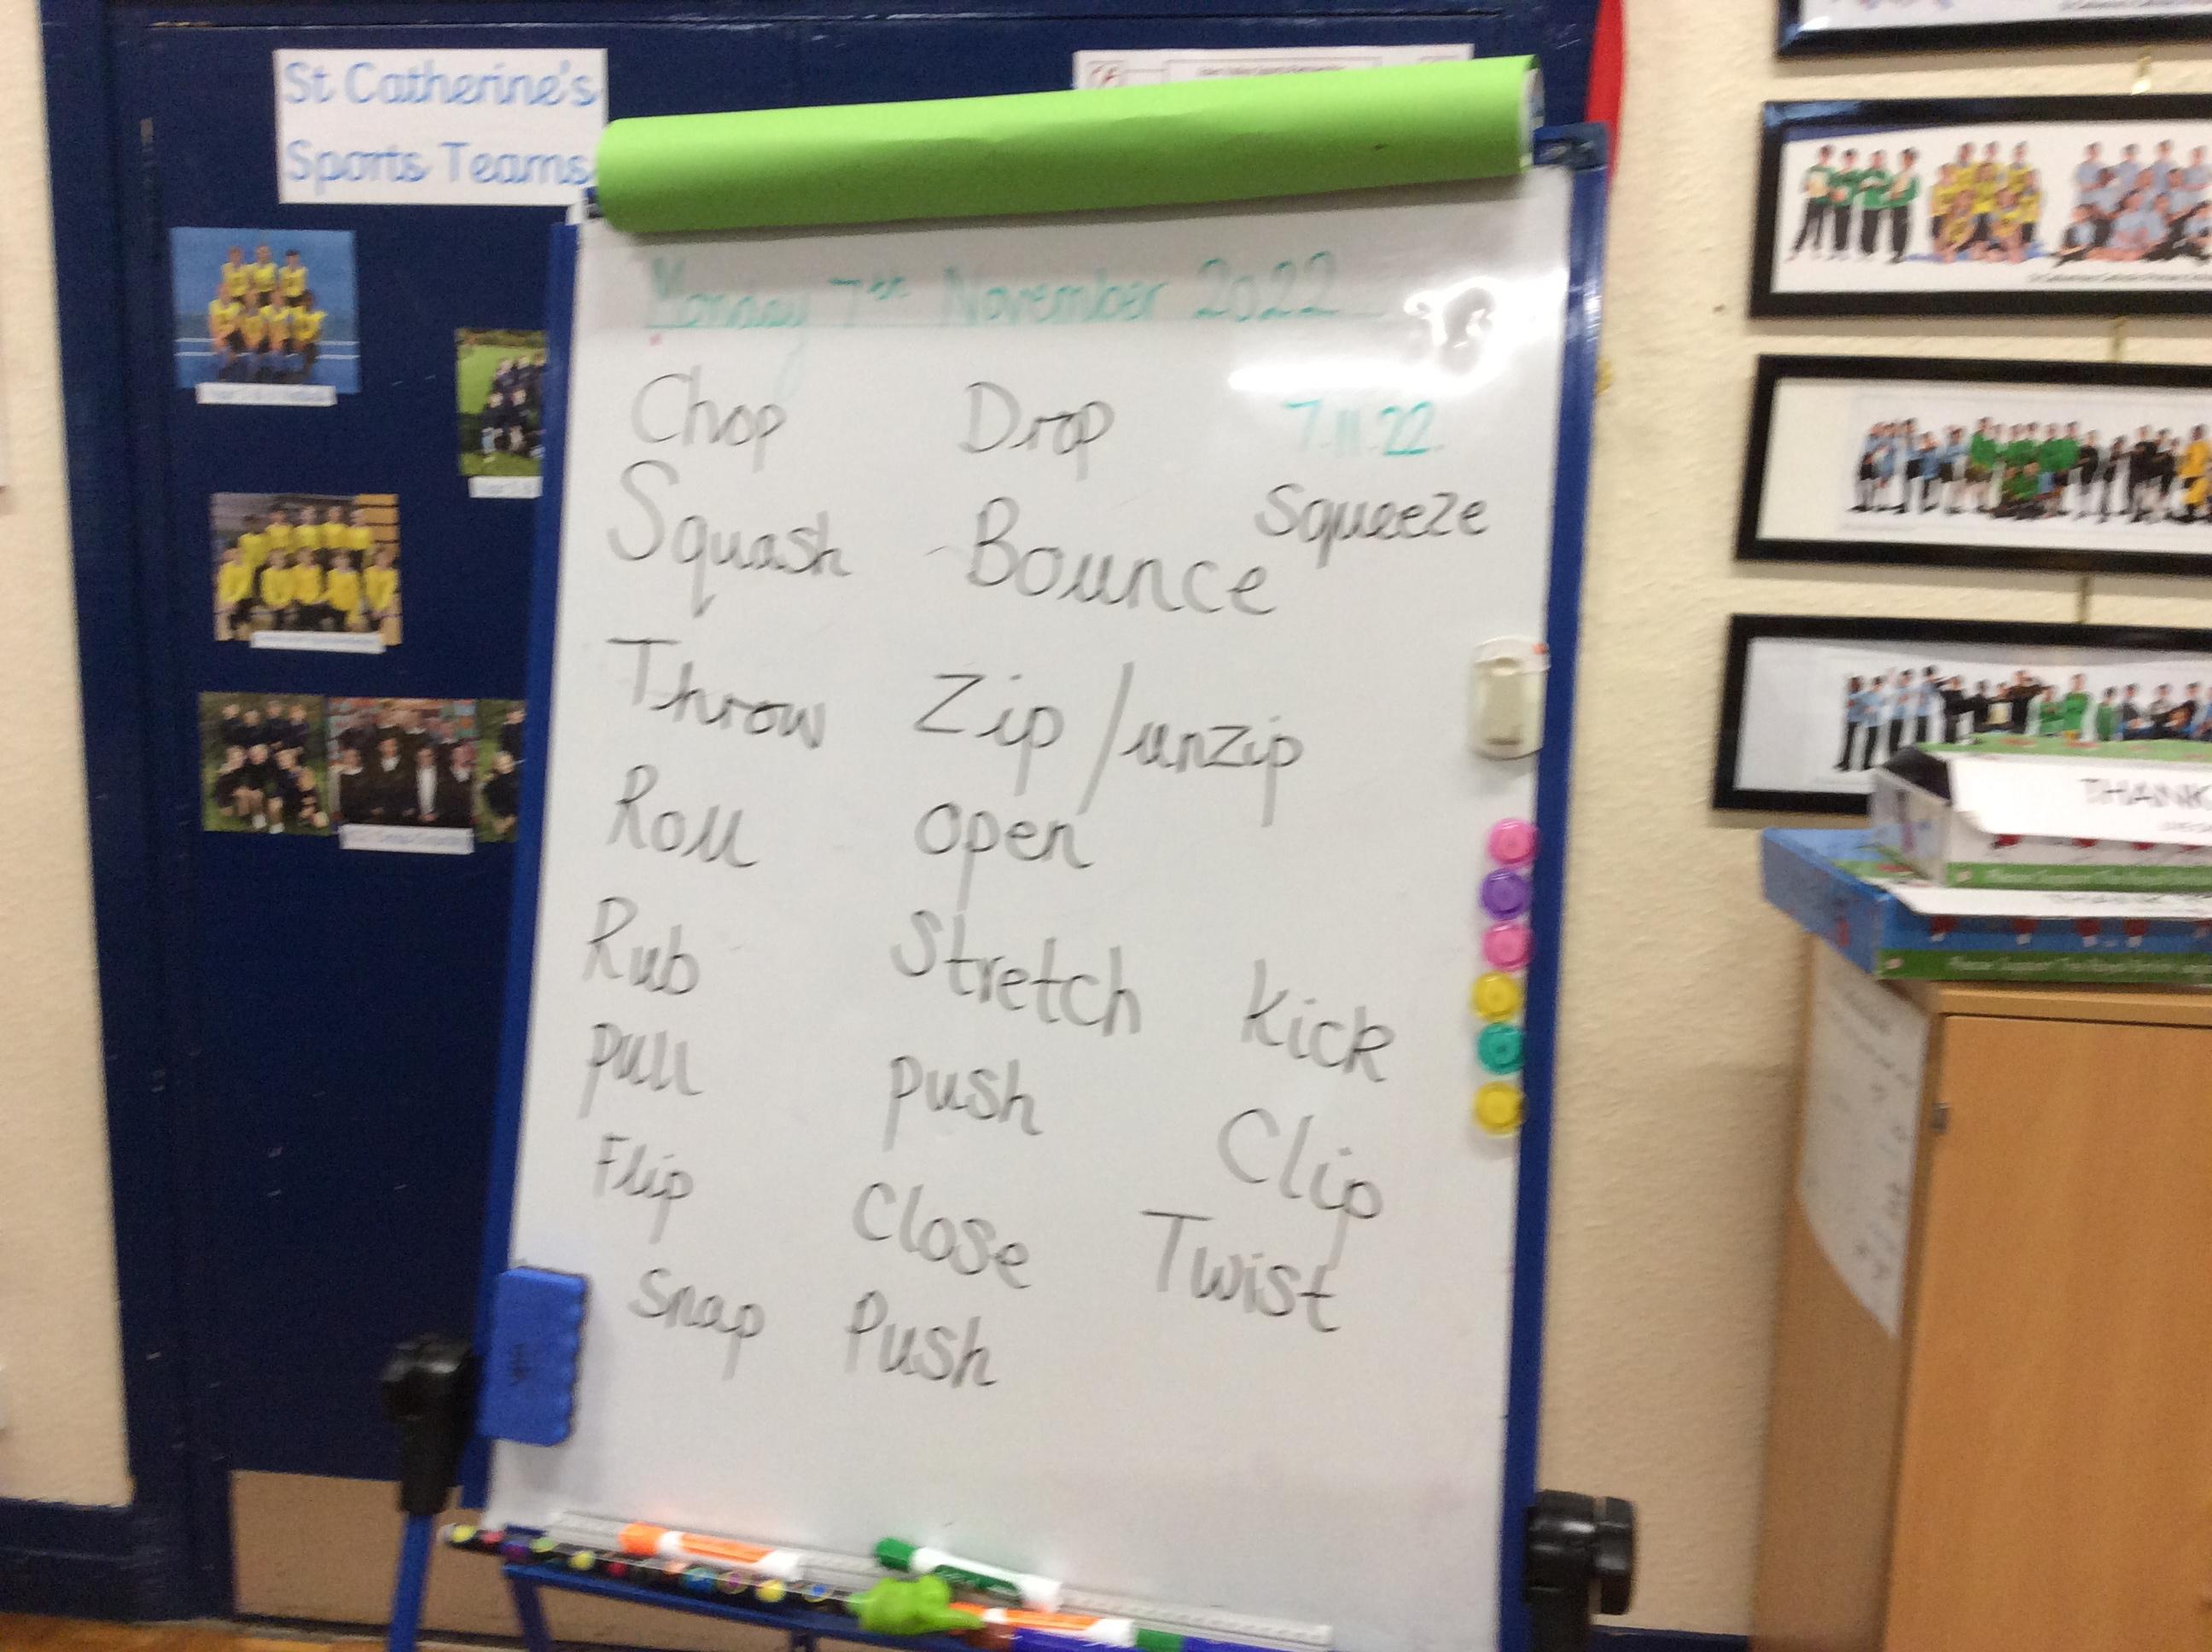 St Catherine's
Sports Teams
Monday 7th November 2022
Chop Drop 7.11.22
Squash Bounce Squeeze
Throw Zip / unzip
Roll open
Rub Stretch kick
pull push Clip
Flip Close Twist
Snap Push
THANK